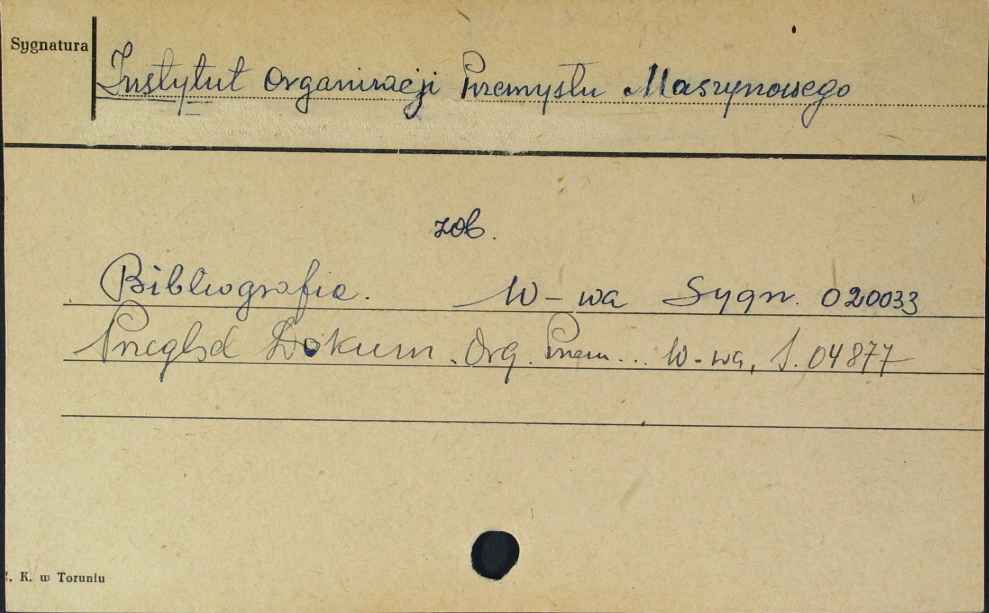 Sygnatura
Instytut Organizacji Przemysłu Maszynowego
zob.
Bibliografia. W-wa Sygn. 020033
Przegląd Dokum. Org. Przem... W-wa, S. 04877
. K. w Toruniu